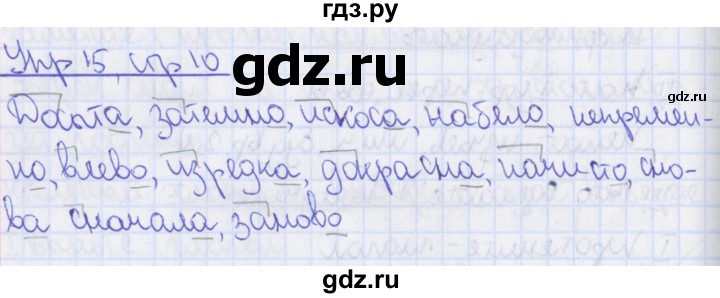 гдз.ру
Упр 15, стр 10
gdz.ru
Досыта, затемно, искоса, набело, непремен-
но, влево, изредка, докрасна, начисто, сно-
ва сначала, заново
gdz.ru
gdz.ru